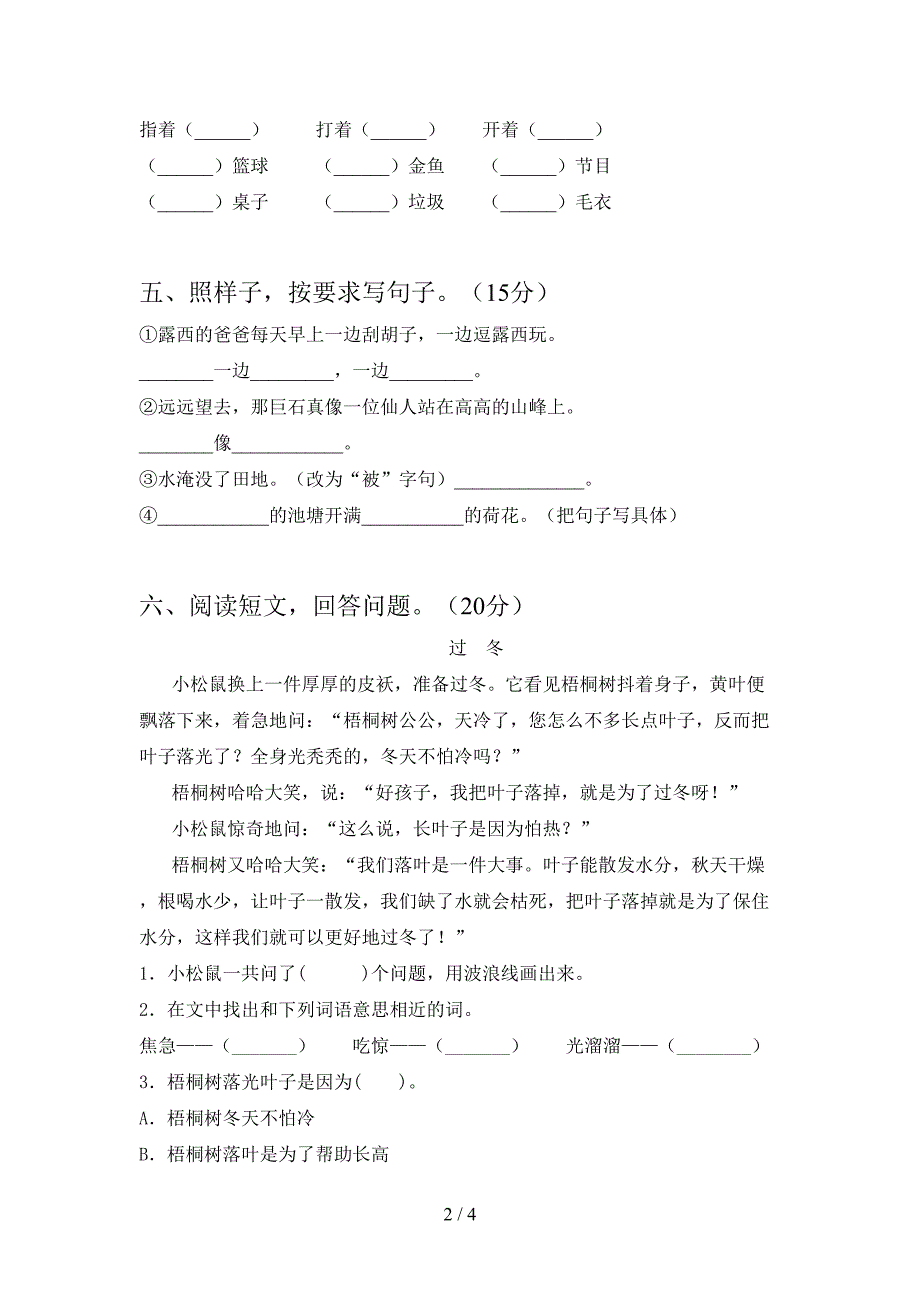 指着（______） 打着（______） 开着（______）
（______）篮球 （______）金鱼 （______）节目
（______）桌子 （______）垃圾 （______）毛衣
五、照样子，按要求写句子。（15分）
①露西的爸爸每天早上一边刮胡子，一边逗露西玩。
________一边_________，一边_________。
②远远望去，那巨石真像一位仙人站在高高的山峰上。
________像____________。
③水淹没了田地。（改为“被”字句）______________。
④____________的池塘开满___________的荷花。（把句子写具体）
六、阅读短文，回答问题。（20分）
过 冬
小松鼠换上一件厚厚的皮袄，准备过冬。它看见梧桐树抖着身子，黄叶便
飘落下来，着急地问：“梧桐树公公，天冷了，您怎么不多长点叶子，反而把
叶子落光了？全身光秃秃的，冬天不怕冷吗？”
梧桐树哈哈大笑，说：“好孩子，我把叶子落掉，就是为了过冬呀！”
小松鼠惊奇地问：“这么说，长叶子是因为怕热？”
梧桐树又哈哈大笑：“我们落叶是一件大事。叶子能散发水分，秋天干燥
，根喝水少，让叶子一散发，我们缺了水就会枯死，把叶子落掉就是为了保住
水分，这样我们就可以更好地过冬了！”
1．小松鼠一共问了( )个问题，用波浪线画出来。
2．在文中找出和下列词语意思相近的词。
焦急——（_______） 吃惊——（_______） 光溜溜——（________）
3．梧桐树落光叶子是因为( )。
A．梧桐树冬天不怕冷
B．梧桐树落叶是为了帮助长高
2 / 4